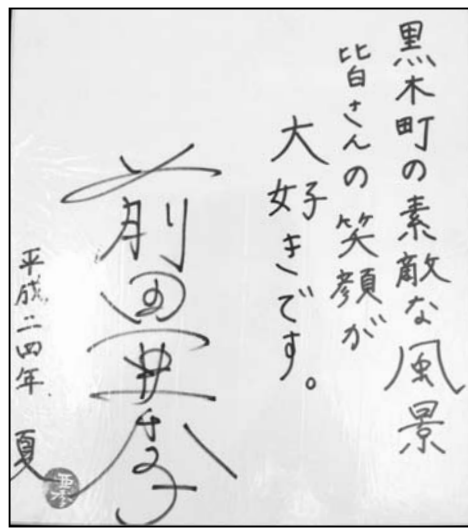 黒木町の素敵な風景
皆さんの笑顔が
大好きです。
前田亜季
平成二四年 夏